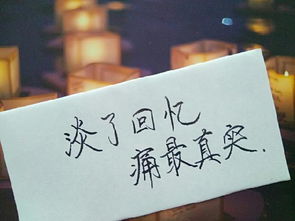 淡了回忆
痛最真实.